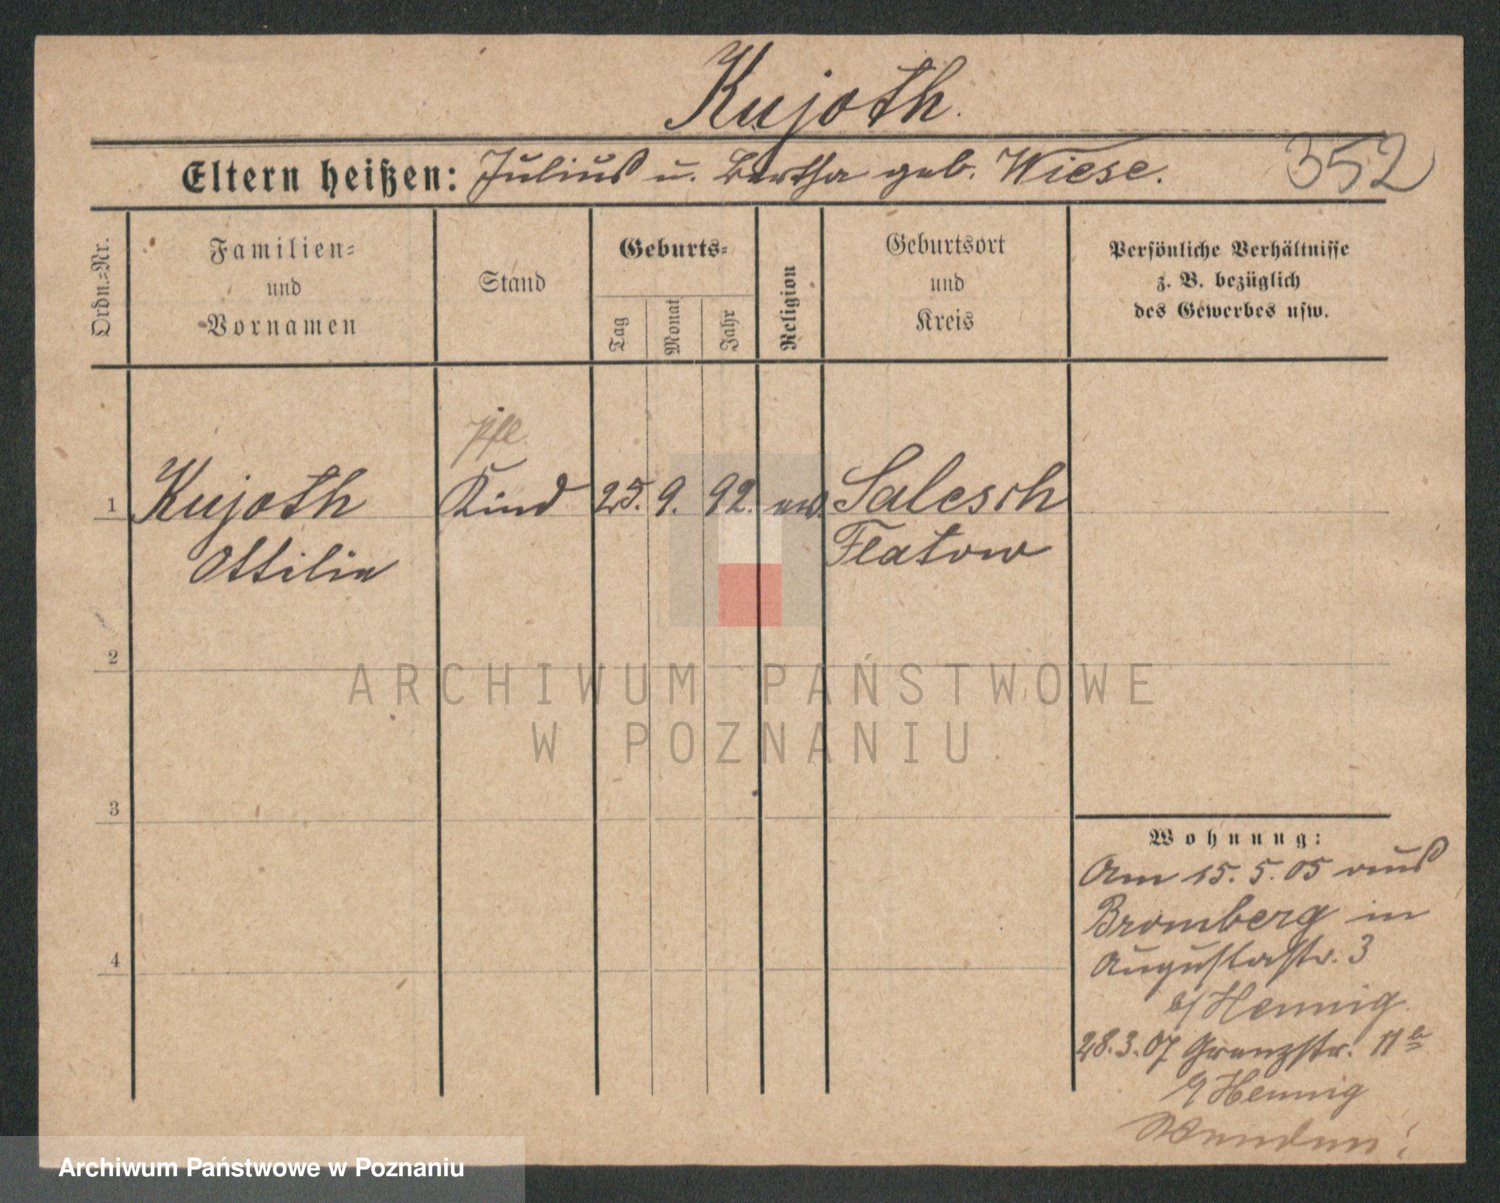 Kujoth.
352
Eltern heißen: Julius u. Bertha geb. Wiese.
Ordn.-Nr.
Familien-
und
Vornamen
Stand
Geburts-
Tag
Monat
Jahr
Religion
Geburtsort
und
Kreis
Persönliche Verhältnisse
z. B. bezüglich
des Gewerbes usw.
pfl.
1 Kujoth Kind 25. 9. 92. ev. Salesch
Ottilie Flatow
2
3
4
Wohnung:
Am 15. 5. 05 aus
Bromberg in
Augustastr. 3
b/ Hennig
28.3.07 Grenzstr. 11a
b/ Hennig
ARCHIWUM PAŃSTWOWE
W POZNANIU
Archiwum Państwowe w Poznaniu